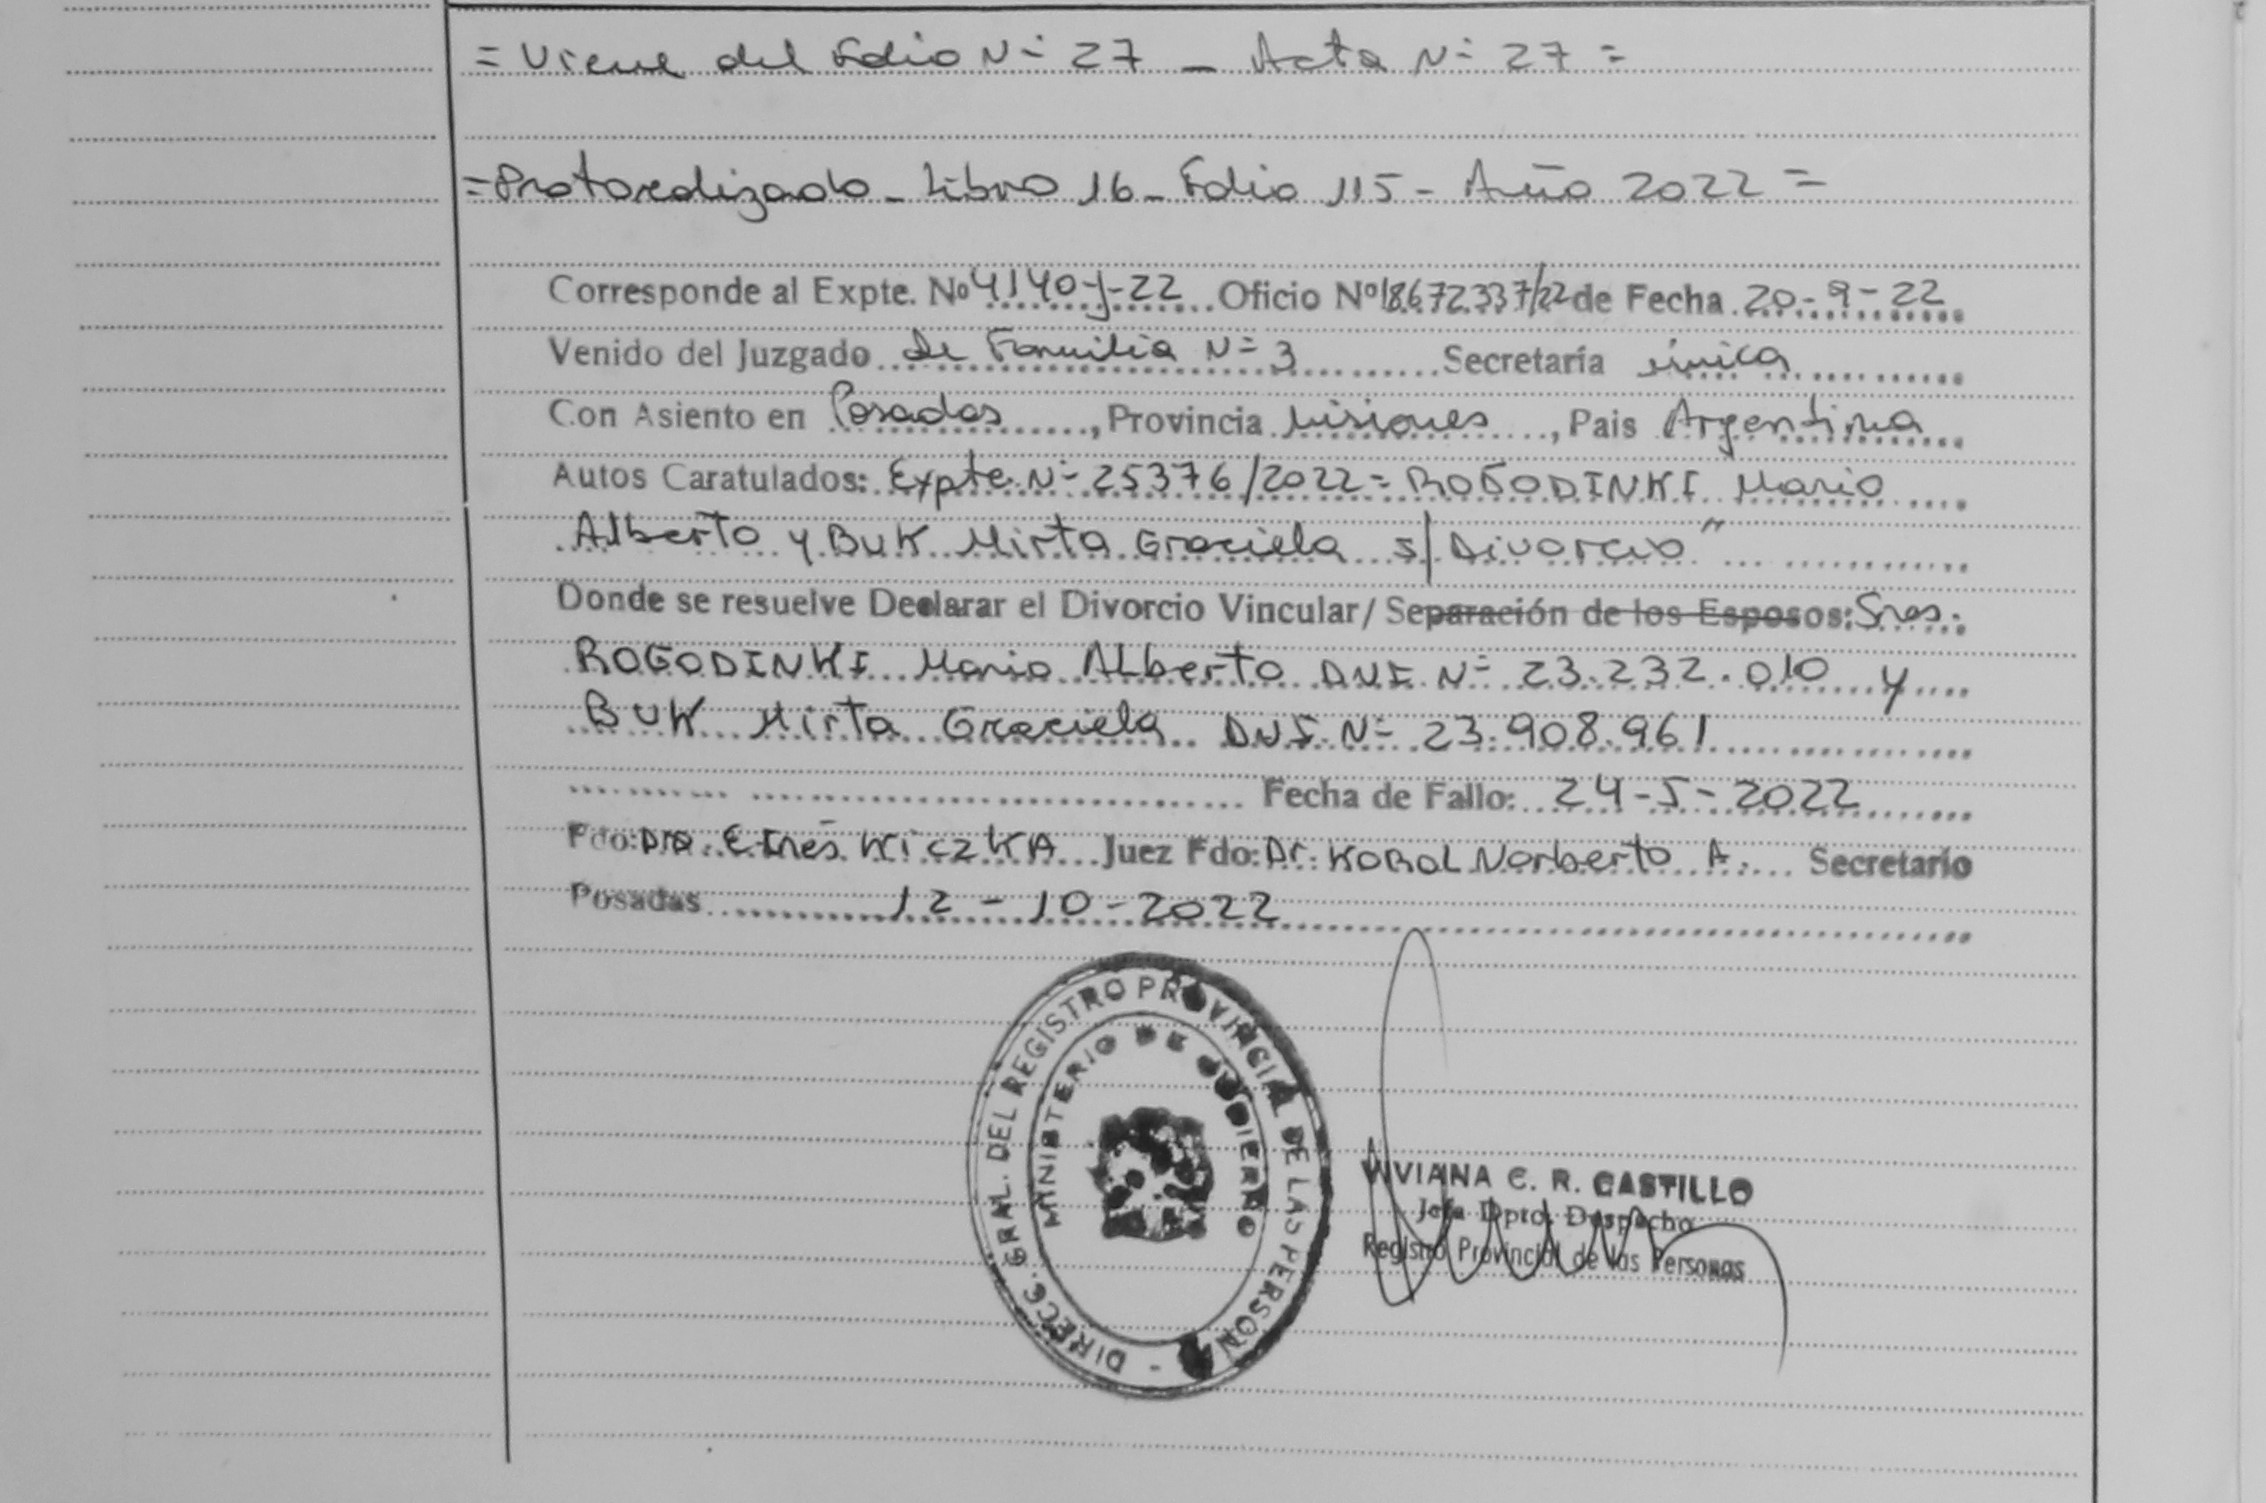 = Viene del Folio Nº 27 _ Acta Nº 27 =
= Protocolizado _ Libro 16 _ Folio 115 - Año 2022 =
Corresponde al Expte. Nº 4140-J-22 Oficio Nº 18672337/22 de Fecha 20-9-22
Venido del Juzgado de Familia Nº 3 Secretaría única
Con Asiento en Posadas, Provincia Misiones, Pais Argentina
Autos Caratulados: Expte. Nº 25376/2022 = ROGODINKI Mario
Alberto y BUK Mirta Graciela s/ Divorcio"
Donde se resuelve Declarar el Divorcio Vincular/ Separación de los Esposos: Sres.
ROGODINKI Mario Alberto DNI Nº 23.232.010 y
BUK Mirta Graciela DNI Nº 23.908.961
Fecha de Fallo: 24-5-2022
Fdo: Dra. E. Inés KiczKA Juez Fdo: Dr. KOROL Norberto A. Secretario
Posadas 12-10-2022
DIRECC. GRAL. DEL REGISTRO PROVINCIAL DE LAS PERSONAS
MINISTERIO DE GOBIERNO
VIVIANA C. R. CASTILLO
Jefa Dpto. Despacho
Registro Provincial de las Personas